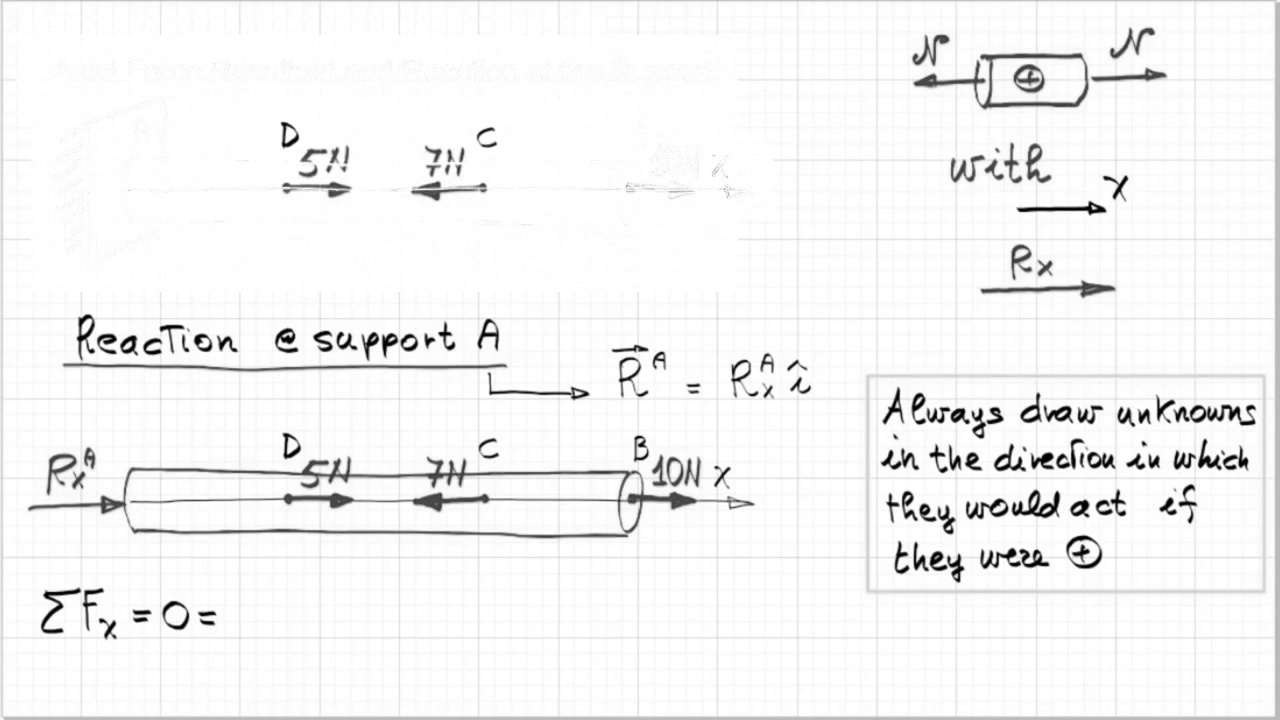 Axial Force Resultant and Reaction at the Support
D 5N 7N C 10N x
N ⊕ N
with
x
Rx
Reaction @ support A
R⃗^A = R_x^A î
R_x^A D 5N 7N C B 10N x
Always draw unknowns
in the direction in which
they would act if
they were ⊕
ΣF_x = 0 =